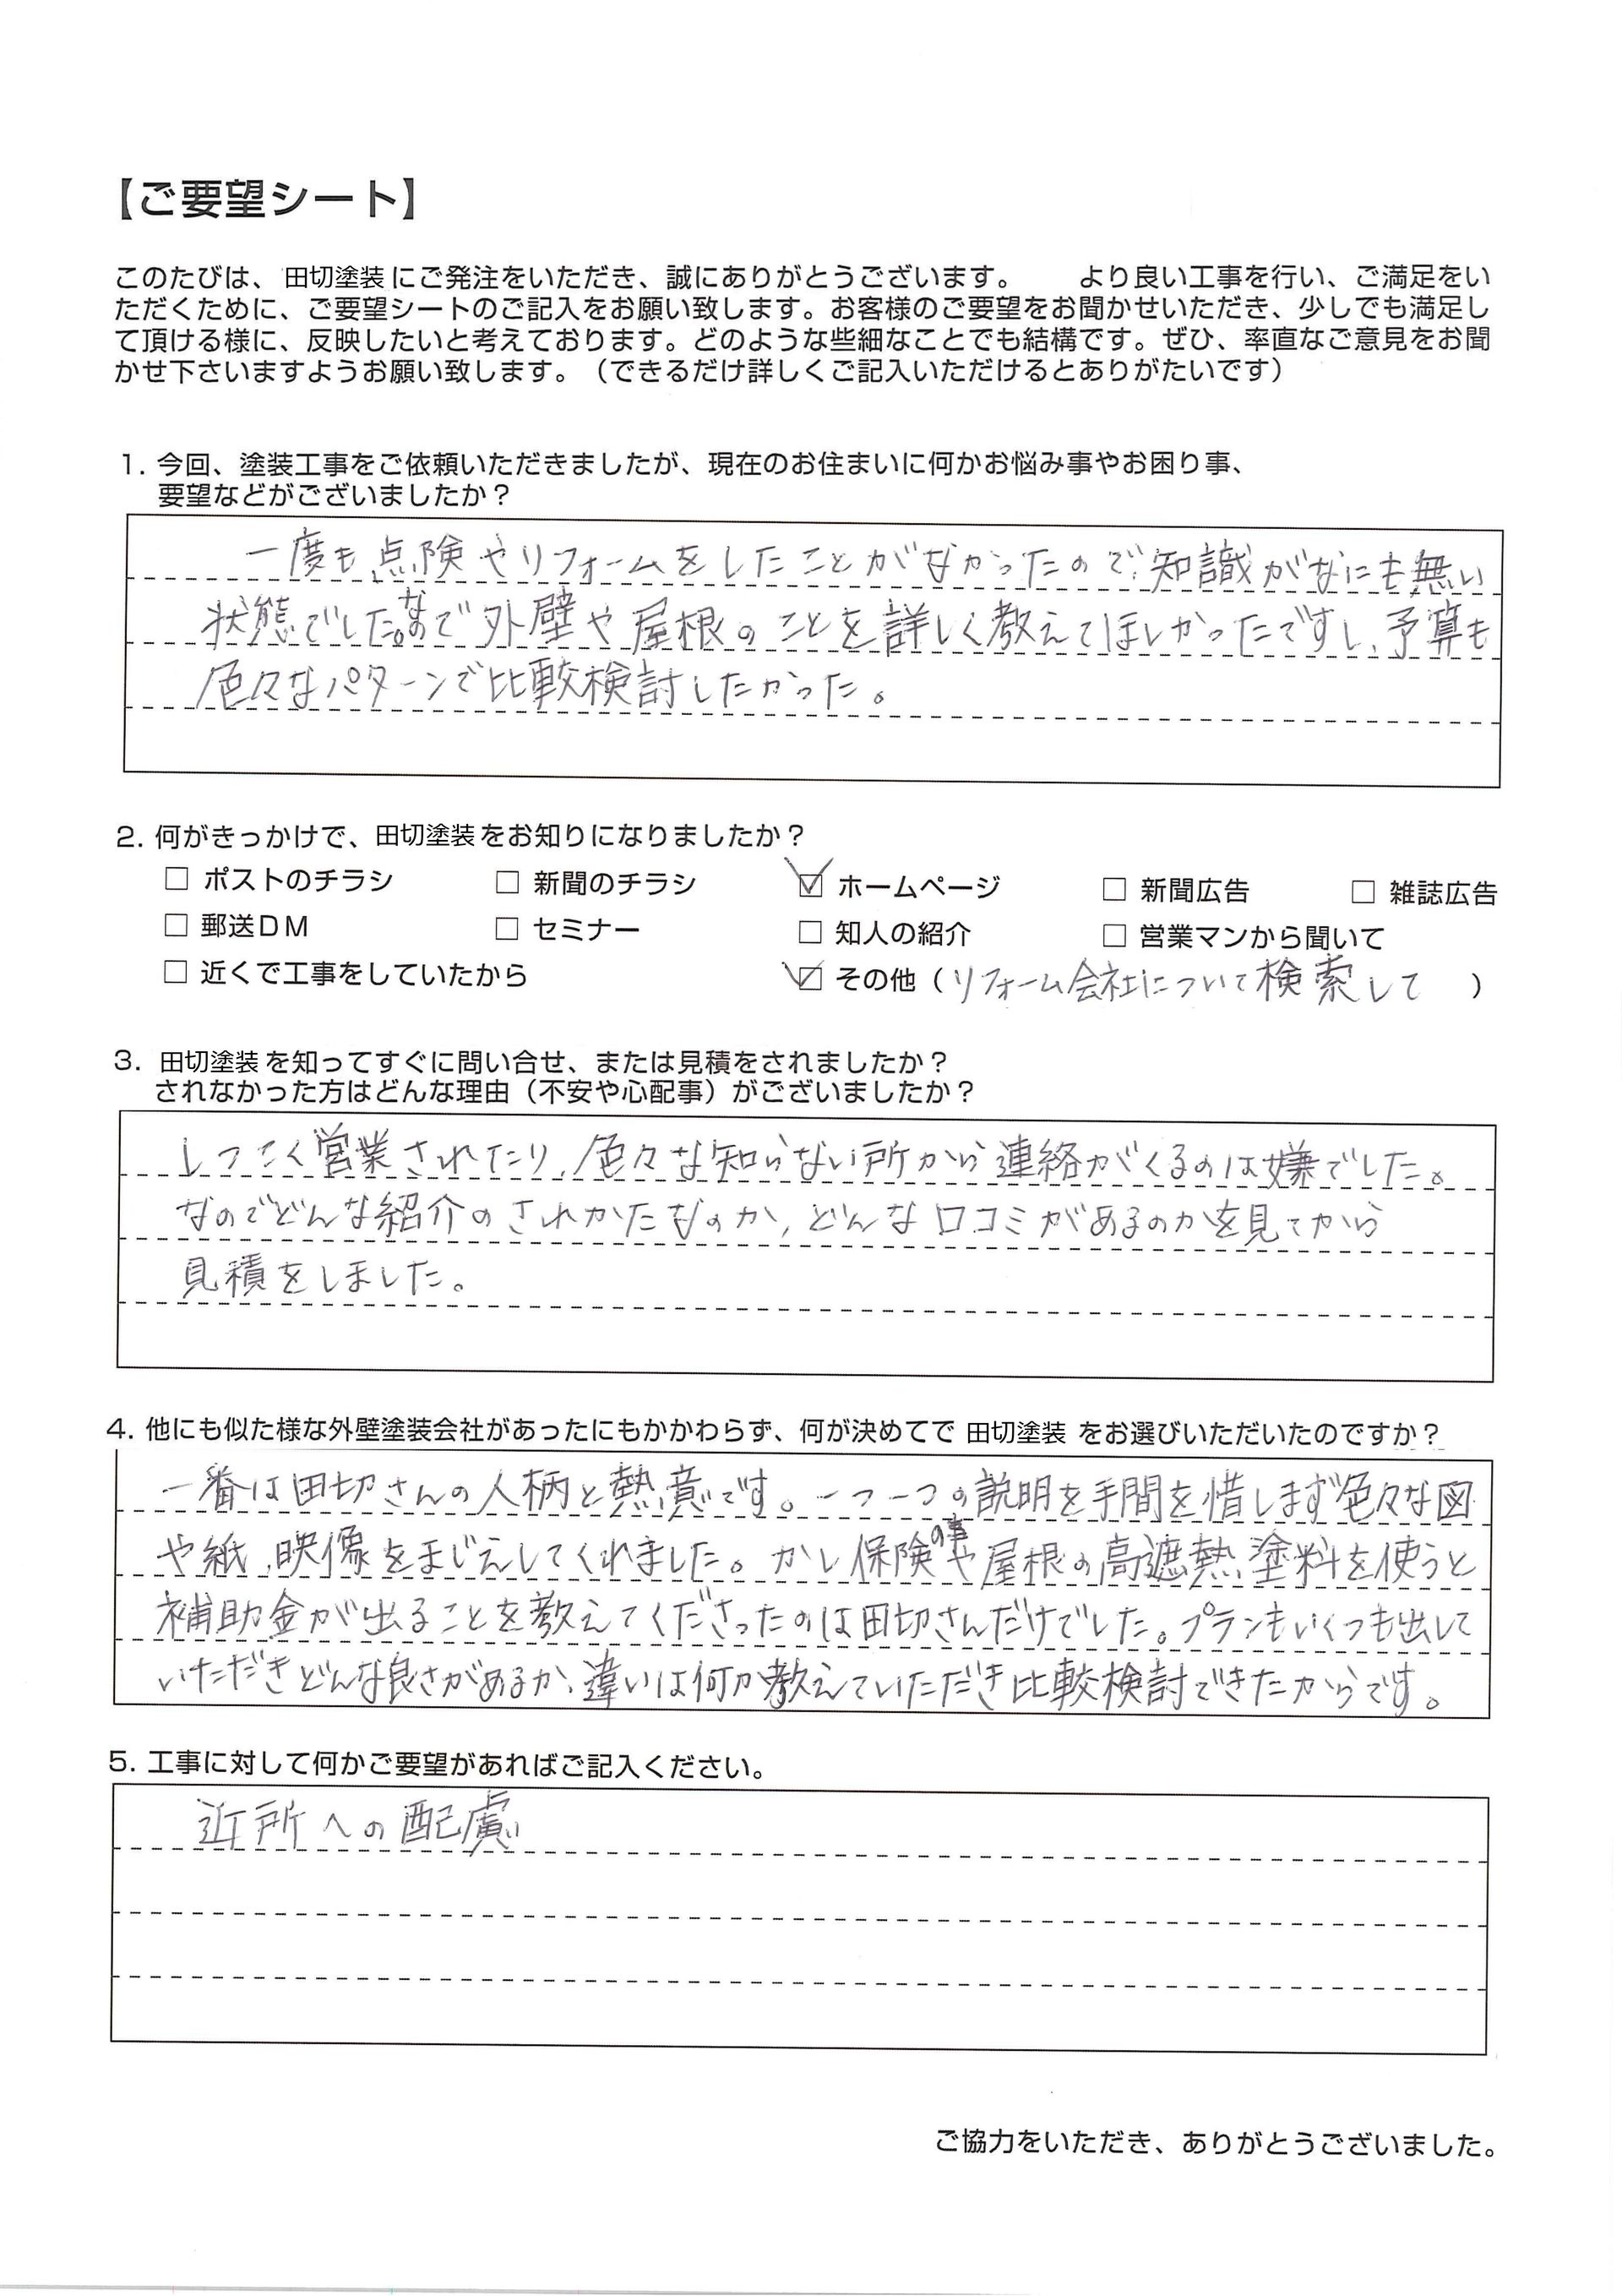 【ご要望シート】
このたびは、田切塗装にご発注をいただき、誠にありがとうございます。　　より良い工事を行い、ご満足をい
ただくために、ご要望シートのご記入をお願い致します。お客様のご要望をお聞かせいただき、少しでも満足し
て頂ける様に、反映したいと考えております。どのような些細なことでも結構です。ぜひ、率直なご意見をお聞
かせ下さいますようお願い致します。（できるだけ詳しくご記入いただけるとありがたいです）
1. 今回、塗装工事をご依頼いただきましたが、現在のお住まいに何かお悩み事やお困り事、
要望などがございましたか？
一度も点険やリフォームをしたことがなかったので知識がなにも無い
状態でした。なので外壁や屋根のことを詳しく教えてほしかったですし、予算も
色々なパターンで比較検討したかった。
2. 何がきっかけで、田切塗装をお知りになりましたか？
□ ポストのチラシ □ 新聞のチラシ ☑ ホームページ □ 新聞広告 □ 雑誌広告
□ 郵送DM □ セミナー □ 知人の紹介 □ 営業マンから聞いて
□ 近くで工事をしていたから ☑ その他（リフォーム会社について検索して）
3. 田切塗装を知ってすぐに問い合せ、または見積をされましたか？
されなかった方はどんな理由（不安や心配事）がございましたか？
しつこく営業されたり、色々な知らない所から連絡がくるのは嫌でした。
なのでどんな紹介のされかたなのか、どんな口コミがあるのかを見てから
見積をしました。
4. 他にも似た様な外壁塗装会社があったにもかかわらず、何が決めてで 田切塗装 をお選びいただいたのですか？
一番は田切さんの人柄と熱意です。一つ一つの説明を手間を惜しまず色々な図
や紙、映像をまじえしてくれました。かし保険の事や屋根の高遮熱塗料を使うと
補助金が出ることを教えてくださったのは田切さんだけでした。プランもいくつも出して
いただきどんな良さがあるか、違いは何か教えていただき比較検討できたからです。
5. 工事に対して何かご要望があればご記入ください。
近所への配慮
ご協力をいただき、ありがとうございました。